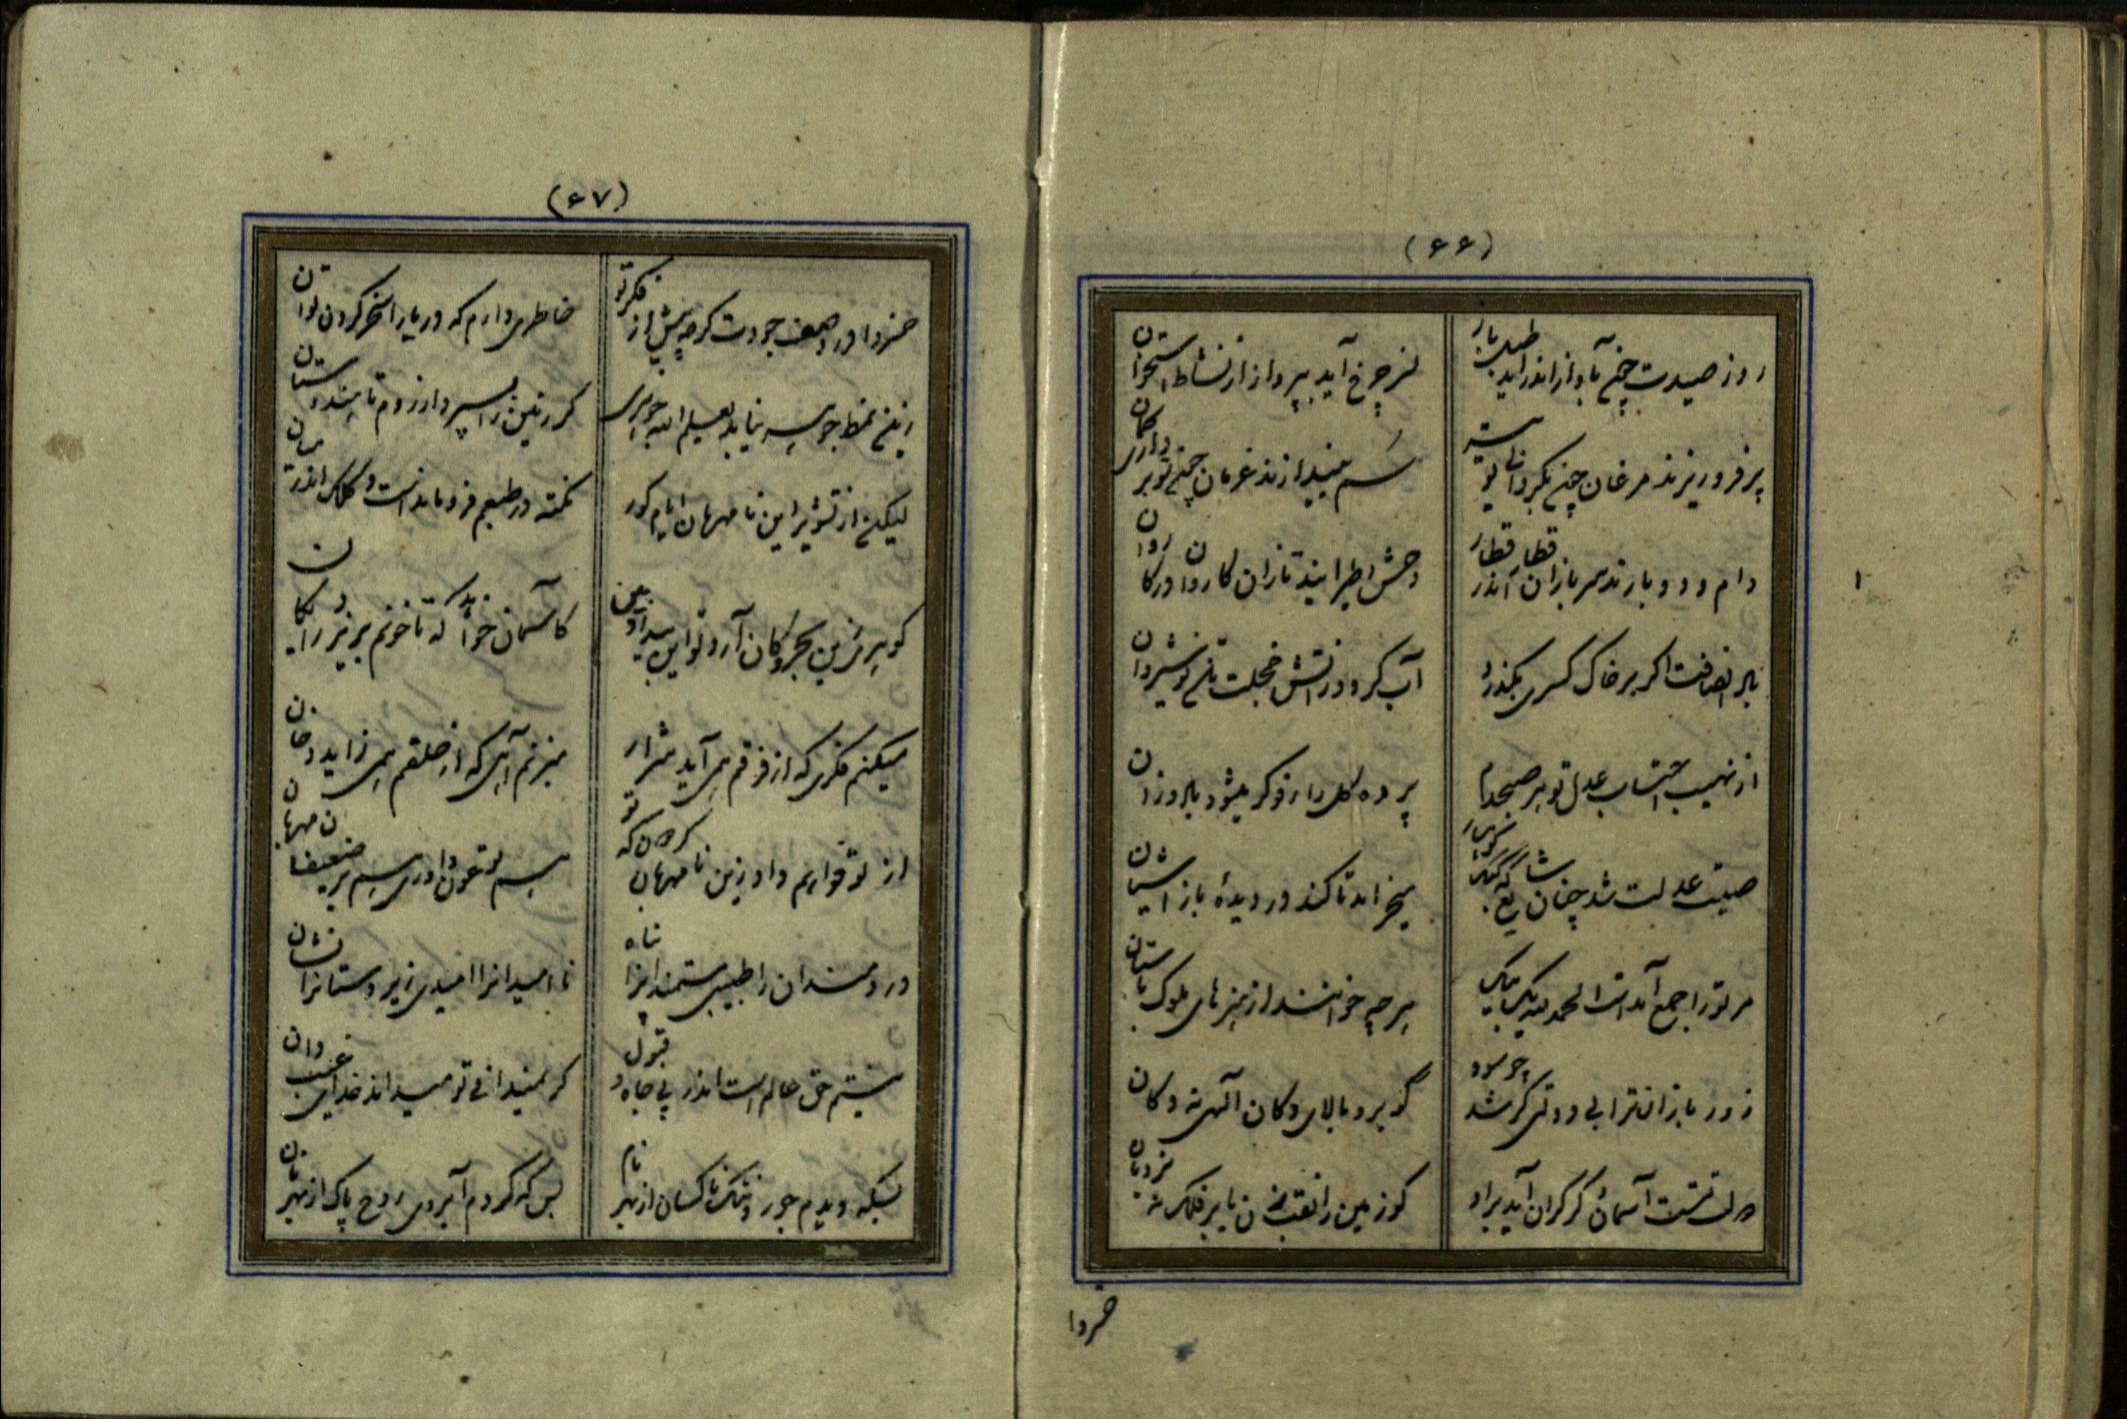 (۶۶)
روز صیدت چون بآواز اندر آید طبل باز
نسر چرخ آید بپرواز از نشاط استخوان
پر فرو ریزند مرغان چون بگردانی تو تیر
سم بیندازند غرمان چون تو برداری کمان
دام و دد بارند سربازان قطار اندر قطار
وحش و طیر آیند تازان کاروان در کاروان
باد انصافت اگر بر خاک کسری بگذرد
آب گردد ز آتش خجلت تن نوشیروان
از نهیب احتساب عدل تو هر صبحدم
پرده گل را رفوگر میشود باد وزان
صیت عدلت شد چنان شایع که کبک کوهسار
میخرامد تا کند در دیدهٔ باز آشیان
مر تو را جمع آمدست الحمدلله یک بیک
هر چه خوانند از هنرهای ملوک باستان
زور بازوان ترا بی دولتی گر شد چه سود
گو برو بالای دکان آلهی نه دکان
دولتست آسمانی گر گران آید براو
کو زمین را نقب زن یا بر فلک نه نردبان
خسروا
(۶۷)
خسروا در وصف جودت گرچه پیش از فکر تو
خاطری دارم که دریا را سخر کردن توان
زین نمط جو سر نیابد بعلیم الله جوهری
گر زمین را بسپرد از روم تا هندوستان
لیکن از تشویر این نامهربان ایام کور
نکته در طبعم فرو ماندست و کلک اندر بنان
گوهر من بین بحر و کان آرد تو این بیداد بین
کآسمان خواند که تا خونم بریزد رایگان
میکنم فکری که از فرقم همی آید شرار
میزنم آهی که از حلقم همی زاید دخان
از تو خواهم داد زین نامهربان گردون که تو
هم تو عون داوری هم بر ضعیفان مهربان
دردمندان را طبیبی مستمندان را پناه
ناامیدانرا امیدی زیردستانرا نشان
نیستم حق عالم است اندر پی جاه و قبول
گر نمیدانی تو میداند خدای غیب دان
بسکه دیدم جور و ننگ ناکسان از بهر نام
بس که کردم آبروی روح پاک از بهر نان